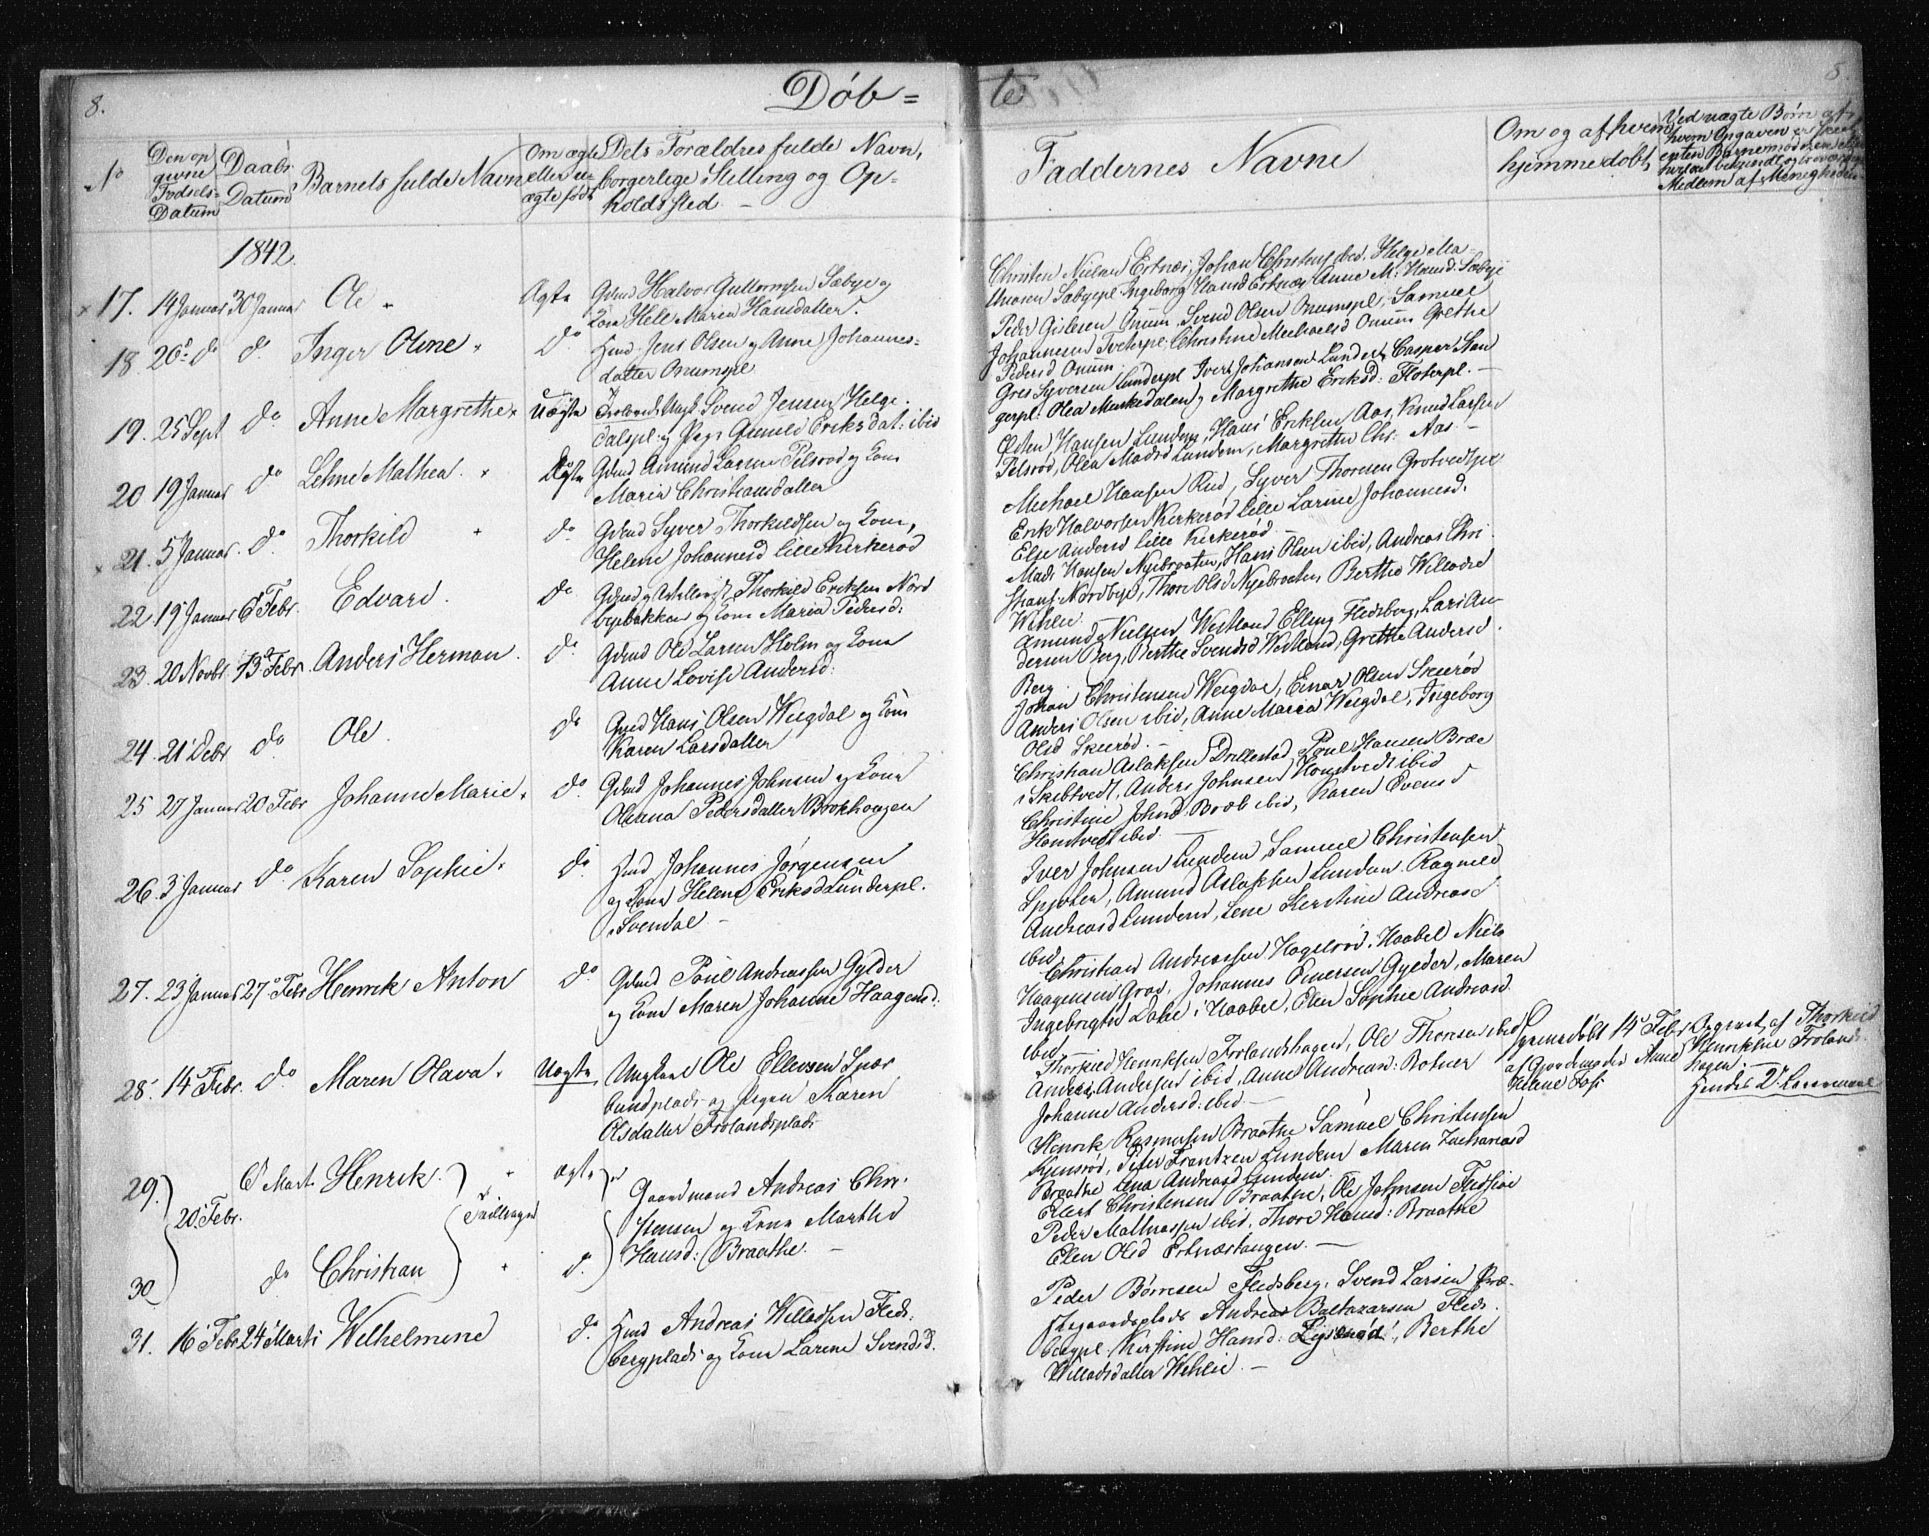 8.
Døb=
te
8
No
Den op
givne
Fødsels-
Datum
Daabs
Datum
Barnets fulde Navn
Om ægte
eller u-
ægte født
Dets Forældres fulde Navn,
borgerlige Stilling og Op-
holdssted. –
Faddernes Navne
Om og af hvem
hjemmedøbt
Ved uægte Børn af
hvem Opgaven er skeet
enten Barnemoderen eller
Medlem af Menigheden
1842
17. 14 Januar 30 Januar Ole Ægte
Gdmd Halvor Guttormsen Sæbye og
Kone Hele Maren Hansdatter.
Christen Nielsen Ertnæs, Johan Christens ibid. Helge Ma-
Sæbyepl. Ingeborg Hansd Ertnæs, Anne M. Hansd: Sæbye
18 26 do do Inger Oline do
Hmd Jens Olsen og Anne Johannes-
datter Onumspl
Peder Gislesen Onum, Svend Olsen Onumspl, Samuel
Johannesen Tveterpl, Christine Michaelsd Onum Grethe
Pedersd Onum.
19. 25 Sept do Anne Margrethe Uægte
Svend Jensen Helge-
dalspl. og Pige Gunild Eriksdat: ibid
Syversen Lunderpl Iver Johansen Lunder, Casper Stan
gerpl. Olea Munkedalen og Margrethe Eriksd: Floterpl. –
20 19 Januar do Lehne Mathea Ægte
Gdmd Amund Larsen Pelsrød og Kone
Maria Christiansdatter
Østen Hansen Lundeng, Hans Eriksen Aas, Knud Larsen
Pelsrød, Olea Madsd Lundem, Margrethe Chr. Aas. –
21. 5 Januar do Thorkild do
Gdmd Syver Thorkildsen og Kone,
Helene Johannesd Lille Kirkerød
Michael Hansen Rud, Syver Thoresen Grotvedtpl
Erik Halvorsen Kirkerød Lille Larine Johannesd.
Else Andersd Lille Kirkerød –
22. 19 Januar 6 Febr. Edvard do
Thorkild Eriksen Nord
byebakken og Kone Maria Pedersd:
Mads Hansen Nyebraaten, Hans Olsen ibid, Andreas Chri
stians. Nordbye, Thore Olsd Nyebraaten Berthe Willadsd
Wehlie
23. 20 Novbr 13 Febr. Anders Herman do
Gdmd Ole Larsen Holm og Kone
Anne Lovise Andersd:
Amund Nielsen Westlund Elling Fledsberg, Lars An-
dersen Berg, Berthe Svendsd Westlund, Grethe Andersd
Berg.
24. 21 Debr do Ole do
Gmd Hans Olsen Weegdal og Kone
Karen Larsdatter
Johan Christensen Weegdal, Einar Olsen Skeerød
Anders Olsen ibid, Anne Maria Weegdal, Ingeborg
Olsd Skeerød. –
25 27 Januar 20 Febr Johanne Marie do
Gdmd Johannes Johnsen og Kone
Oleana Pedersdatter Brokhougen
Christian Aslaksen Drillestad Poul Hansen Bræe
i Skibtvedt, Anders Johnsen Homstvedt ibid
Christine Johnsd. Bræe ibid, Karen Evensd
Homstvedt ibid. –
26. 3 Januar do Karen Sophie do
Hmd Johannes Jørgensen
og Kone Helene Eriksd Lunderpl.
i Svendal –
Iver Johnsen Lundem, Samuel Christensen
Spjoten, Amund Aslaksen Lundem. Ragnild
Andreasd Lundem, Lene Kirstine Andreasd
ibid.
27. 23 Januar 27 Febr Henrik Anton do
Gdmd Poul Andreassen Gylder
og Kone Maren Johanne Haagensd:
Christian Andreassen Hogelsrød i Haabel Niels
Haagensen Grav, Johannes Gylder, Maren
Ingebrigtsd Dahl i Haabel, Elen Sophie Andreasd.
ibid –
28. 14 Febr. do Maren Olava Uægte
Ungkarl Ole Ellevsen Spær
bundplads og Pigen Karen
Olsdatter Frolandsplads
Thorkild Henriksen Frolandshagen, Ole Thoresen ibid
Andreas Andersen ibid, Anne Andreasd: Botner
Johanne Andersd: ibid –
Hjemmedøbt 14 Febr.
af Gjordemoder Anne
Helene Fosj
Angivet af Thorkild
Henriksen Frolands-
hagen
Hendes 2det Leiermaal
29. 20. Febr. 6 Marts Henrik. Tvillinger ægte
Gaardmand Andreas Chri-
stensen og Kone Marthe
Hansd: Braathe. –
Henrik Rasmusen Braathe Samuel Christensen
Kjensrød, Peter Frantzen Lundem Maren Zachariasd
Braathe Lena Andreasd Lundem.
30 do Christian do
Eilert Christensen Braathe, Ole Johnsen Fledsjøe
Peder Mathiassen ibid. Thore Hansd: Braathe
Elen Olsd Ertnæstangen. –
31. 16 Febr 24 Marts Wilhelmine do.
Hmd Andreas Willadsen Fleds-
bergplads og Kone Larine Svendsd.
Peder Børresen Fledsberg, Svend Larsen Præ-
stegaardsplads Andreas Baltazarsen Fleds-
bergpl. Kirstine Hansd: Lyserød, Berthe
Willadsdatter Wehlie. –